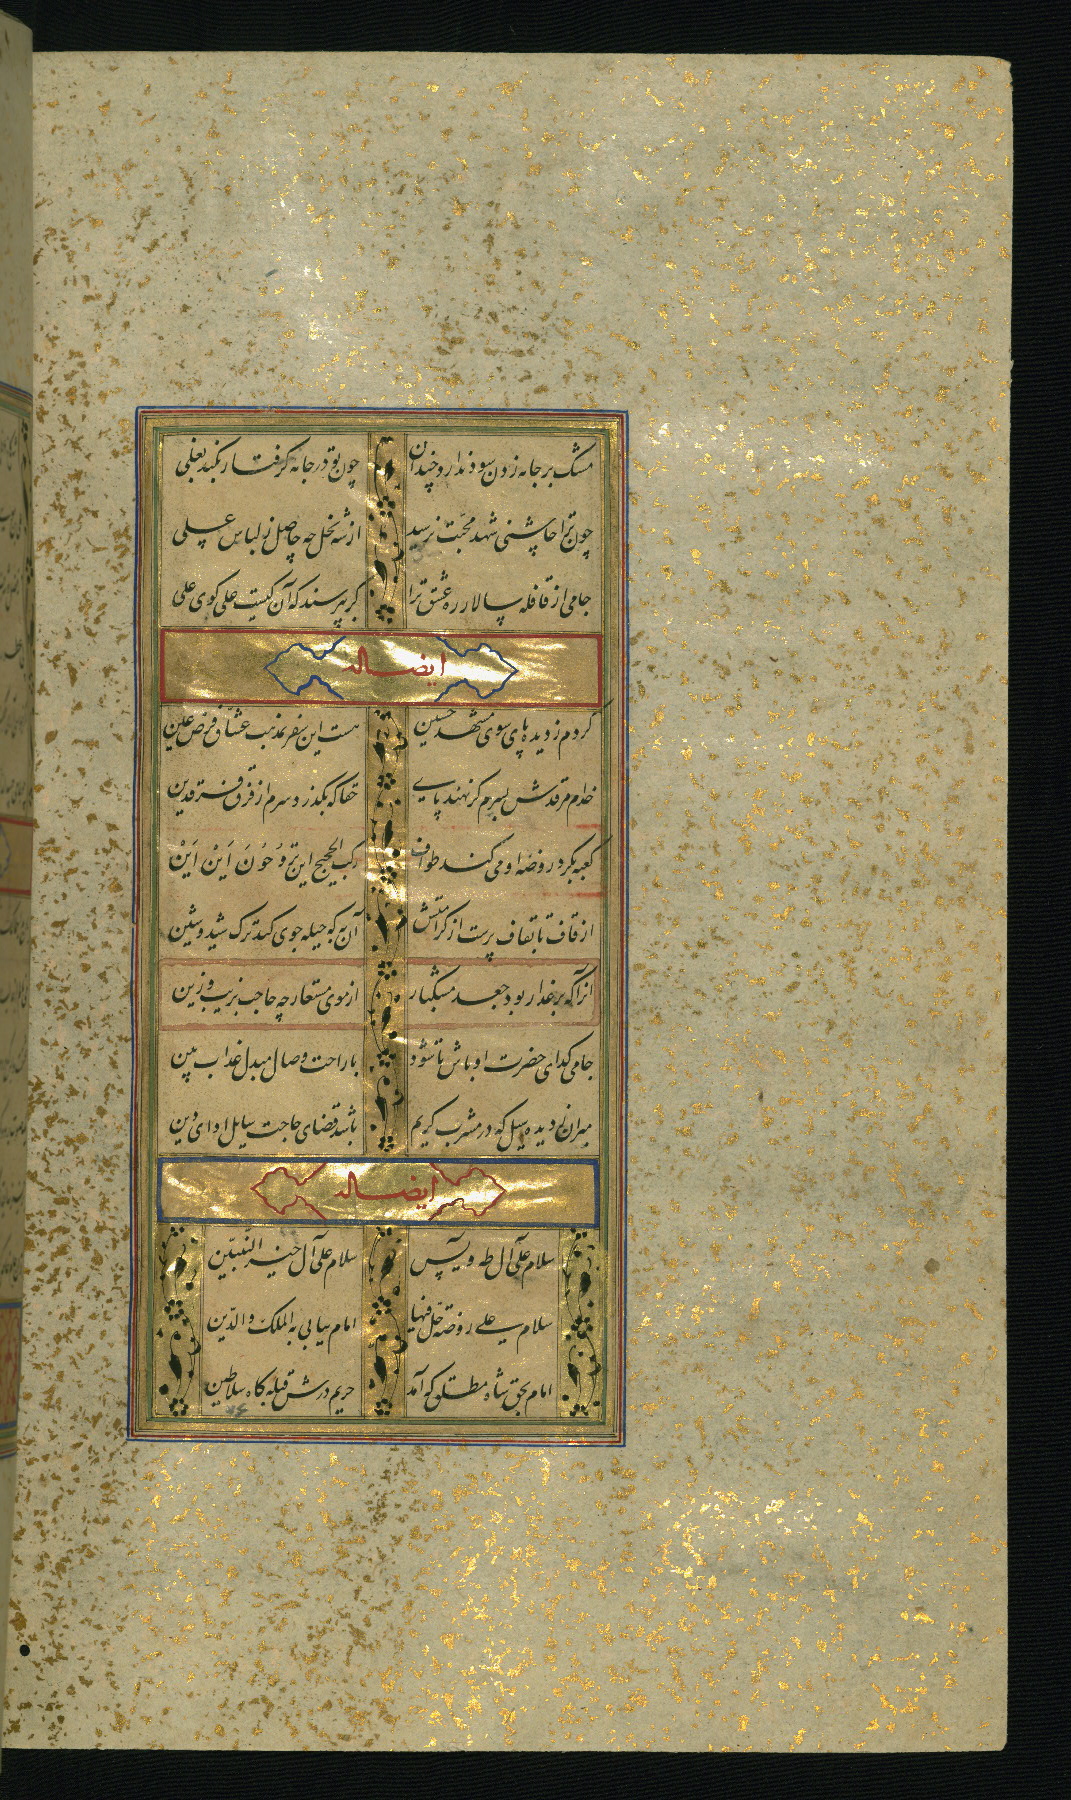 مشک بر جامه زدن سود ندارد چندان چون تو در جامه گرفتار بگند بغلی
چون ترا چاشنی شهد محبت نرسید از شه نحل چه حاصل ز لباس عسلی
جامی از قافله سالار ره عشق ترا گر بپرسند که آن کیست علی گوی علی
ایضا له
کردم ز دیده پای سوی مشهد حسین هست این سفر بمذهب عشاق فرض عین
خدام مرقدش بسرم گر نهند پای حقا که بگذرد سرم از فرق فرقدین
کعبه بگرد روضه او می کند طواف رکب الحجیج این تروحون این این
از قاف تا بقاف پرست از کرامتش آن به که حیله جوی کند ترک شید و شین
آنرا که بر عذار بود جعد مشکبار از موی مستعار چه حاجت بزیب و زین
جامی گدای حضرت او باش تا شود با راحت وصال مبدل عذاب بین
میران ز دیده سیل که در مشرب کریم باشد قضای حاجت سایل ادای دین
ایضا له
سلام علی آل طه و یس سلام علی آل خیر النبیین
سلام علی روضة حل فیها امام یباهی به الملک والدین
امام بحق شاه مطلق که آمد حریم درش قبله گاه سلاطین